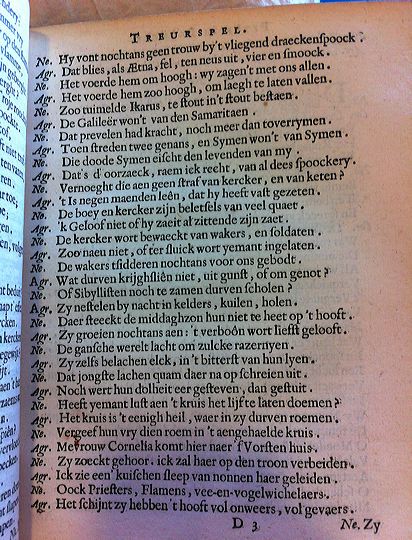 TREURSPEL.
Ne. Hy vont nochtans geen trouw by't vliegend draeckenspoock.
Agr. Dat blies, als Ætna, fel, ten neus uit, vier en smoock.
Ne. Het voerde hem om hoogh: wy zagen't met ons allen.
Agr. Het voerde hem zoo hoogh, om laegh te laten vallen.
Ne. Zoo tuimelde Ikarus, te stout in't stout bestaen.
Agr. De Galileër won't van den Samaritaen.
Ne. Dat prevelen had kracht, noch meer dan toverrymen.
Agr. Toen streden twee genans, en Symen won't van Symen.
Ne. Die doode Symen eischt den levenden van my.
Agr. Dat's d'oorzaeck, raem iek recht, van al dees spoockery.
Ne. Vernoeght die aen geen straf van kercker, en van keten?
Agr. 't Is negen maenden leên, dat hy heeft vast gezeten.
Ne. De boey en kercker zijn beletsels van veel quaet.
Agr. 'k Geloof niet of hy zaeit al zittende zijn zaet.
Ne. De kercker wort bewaeckt van wakers, en soldaten.
Agr. Zoo naeu niet, of ter sluick wort yemant ingelaten.
Ne. De wakers tsidderen nochtans voor ons gebodt.
Agr. Wat durven krijghsliên niet, uit gunst, of om genot?
Ne. Of Sibyllisten noch te zamen durven scholen?
Agr. Zy nestelen by nacht in kelders, kuilen, holen.
Ne. Daer steeckt de middaghzon hun niet te heet op 't hooft.
Agr. Zy groeien nochtans aen: 't verboôn wort liefst gelooft.
Ne. De gansche werelt lacht om zulcke razernyen.
Agr. Zy zelfs belachen elck, in 't bitterst van hun lyen.
Ne. Dat jongste lachen quam daer na op schreien uit.
Agr. Noch wert hun dolheit eer gesteven, dan gestuit.
Ne. Heeft yemant lust aen 't kruis het lijf te laten doemen?
Agr. Het kruis is 't eenigh heil, waer in zy durven roemen.
Ne. Vergeef hun vry dien roem in 't aengehaelde kruis.
Agr. Mevrouw Cornelia komt hier naer 's Vorsten huis.
Ne. Zy zoeckt gehoor. ick zal haer op den troon verbeiden.
Agr. Ick zie een' kuischen sleep van nonnen haer geleiden.
Ne. Oock Priesters, Flamens, vee-en-vogelwichelaers.
Agr. Het schijnt zy hebben 't hooft vol onweers, vol gevaers.
D 3 Ne. Zy